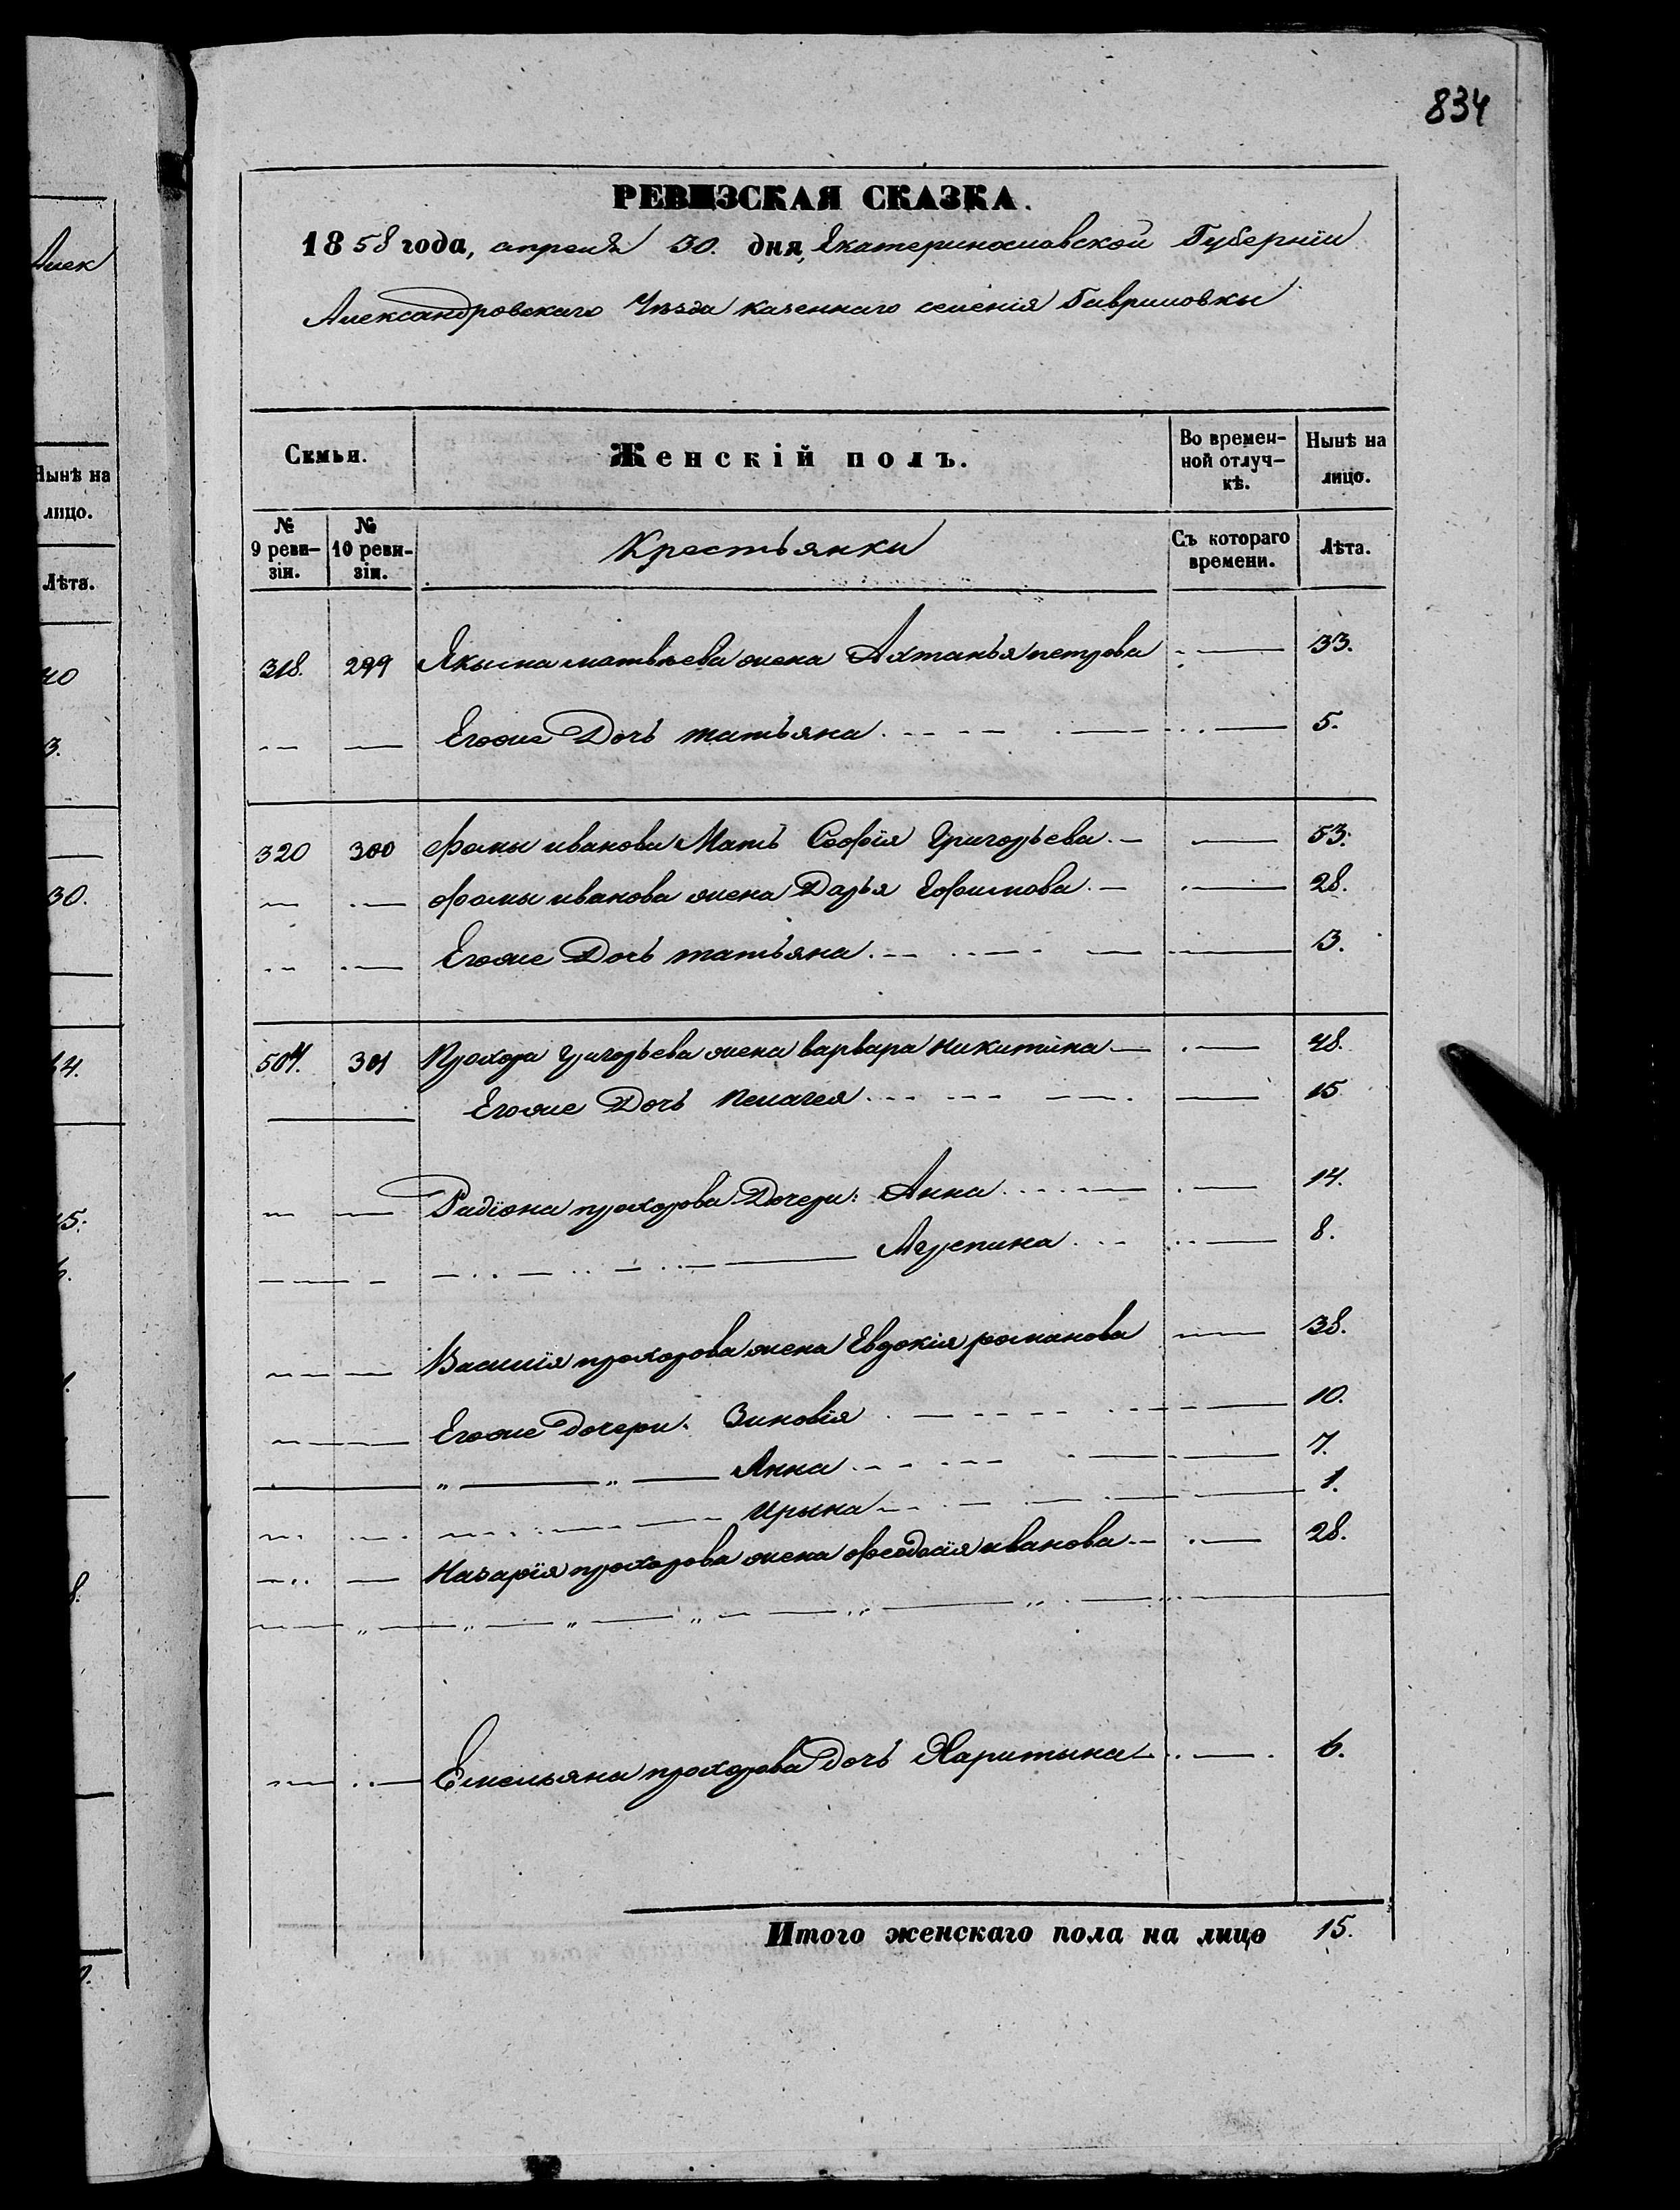 834
Алек
Нынѣ на
лицо.
Лѣта.
40
3.
30.
РЕВИЗСКАЯ СКАЗКА.
1858 года, апреля 30. дня, Екатеринославской Губерніи
Александровскаго Уѣзда казеннаго селенія Гавриловки
Семьи.
Женскій полъ.
Во времен-
ной отлуч-
кѣ.
Нынѣ на
лицо.
№
9 реви-
зіи.
№
10 реви-
зіи.
Крестьянки
Съ котораго
времени.
Лѣта.
318. 299 Якима матвѣева жена Ахтанья петрова 33.
Егоже Дочь татьяна 5.
320 300 Фомы иванова Мать Софія Григорьева 53.
Фомы иванова жена Дарья Ефимова 28.
Егоже Дочь татьяна 3.
504. 301 Прохора григорьева жена варвара никитина 48.
Егоже Дочь пелагея 15
Радіона прохорова Дочери: Анна 14.
Агрепина 8.
Василія прохорова жена Евдокія романова 38.
Егоже дочери: Зиновія 10.
Анна 7.
Ирына 1.
Назарія прохорова жена феодосія иванова 28.
Емельяна прохорова дочь Харитына 6.
Итого женскаго пола на лицо 15.